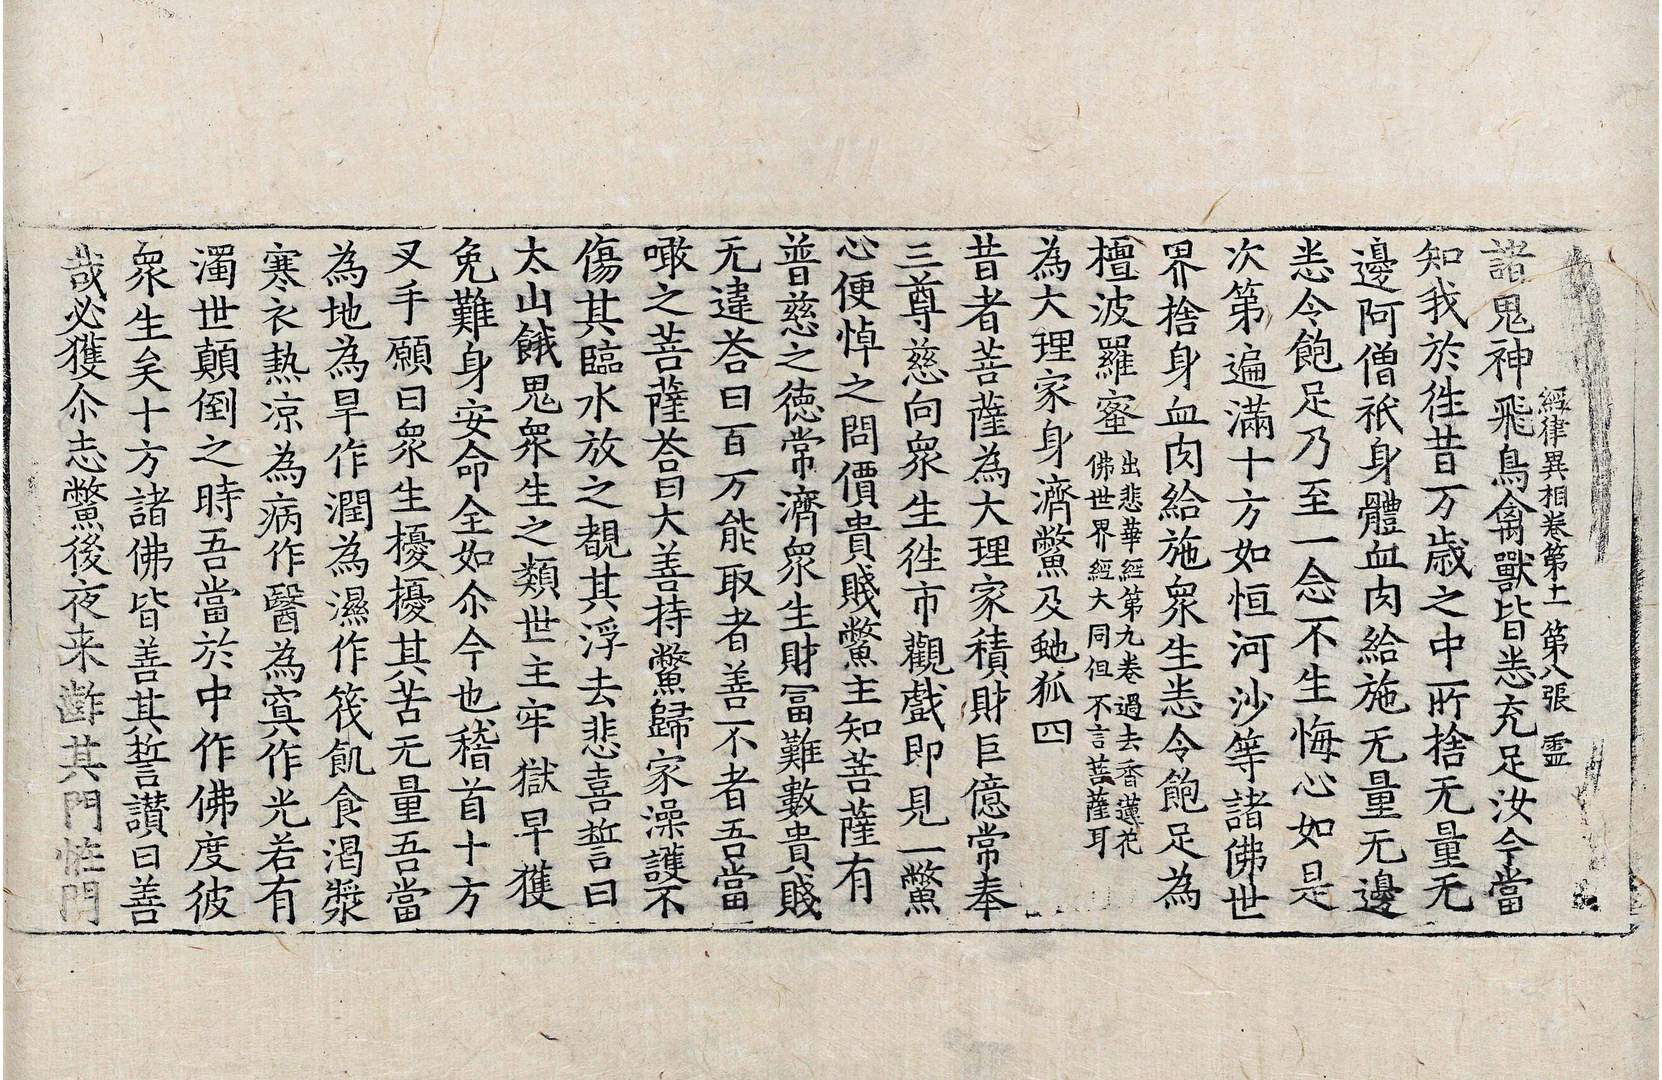 經律異相卷第十一 第八張 靈
諸鬼神飛鳥禽獸皆悉充足汝今當
知我於徃昔万歳之中所捨无量无
邊阿僧祇身體血肉給施无量无邊
悉令飽足乃至一念不生悔心如是
次第遍滿十方如恒河沙等諸佛世
界捨身血肉給施衆生悉令飽足為
檀波羅蜜
出悲華經第九卷過去香蓮花
佛世界經大同但不言菩薩耳
為大理家身濟鱉及虵狐四
昔者菩薩為大理家積財巨億常奉
三尊慈向衆生徃市觀戲即見一鱉
心便悼之問價貴賤鱉主知菩薩有
普慈之德常濟衆生財冨難數貴賤
无違荅曰百万能取者善不者吾當
噉之菩薩荅曰大善持鱉歸家澡護不
傷其臨水放之覩其浮去悲喜誓曰
太山餓鬼衆生之類世主牢獄早獲
免難身安命全如尒今也稽首十方
叉手願曰衆生擾擾其苦无量吾當
為地為旱作潤為濕作筏飢食渴漿
寒衣熱凉為病作醫為冥作光若有
濁世顛倒之時吾當於中作佛度彼
衆生矣十方諸佛皆善其誓讃曰善
哉必獲尒志鱉後夜来齚其門恠門